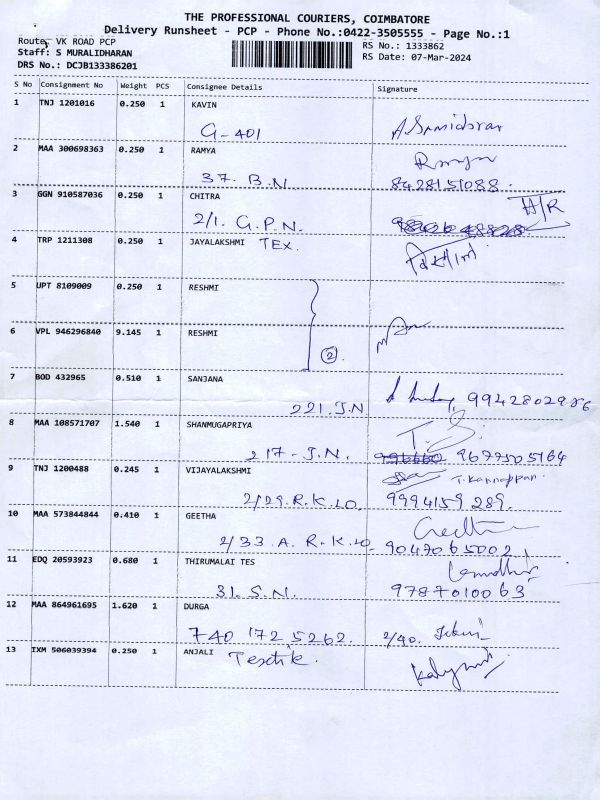 THE PROFESSIONAL COURIERS, COIMBATORE
Delivery Runsheet - PCP - Phone No.:0422-3505555 - Page No.:1
Route, VK ROAD PCP
Staff: S MURALIDHARAN
DRS No.: DCJB133386201
RS No.: 1333862
RS Date: 07-Mar-2024
S No Consignment No Weight PCS Consignee Details Signature
1 TNJ 1201016 0.250 1 KAVIN
G-401
2 MAA 300698363 0.250 1 RAMYA
37. B.N. 8428151088.
3 GGN 910587036 0.250 1 CHITRA
2/1. G.P.N.
4 TRP 1211308 0.250 1 JAYALAKSHMI TEX.
5 UPT 8109009 0.250 1 RESHMI
6 VPL 946296840 9.145 1 RESHMI
2
7 BOD 432965 0.510 1 SANJANA
221. J.N 9942802986
8 MAA 108571707 1.540 1 SHANMUGAPRIYA T. S.
217-J.N. 9677505164
9 TNJ 1200488 0.245 1 VIJAYALAKSHMI T. Kannappan
2/29. R.K.LO. 9994159289.
10 MAA 573844844 0.410 1 GEETHA Geetha
2/33 A. R.K.LO 9047065002
11 EDQ 20593923 0.680 1 THIRUMALAI TES
31. S.N. 9787010063
12 MAA 864961695 1.620 1 DURGA
740 172 5262. 2/40.
13 IXM 506039394 0.250 1 ANJALI Textile.